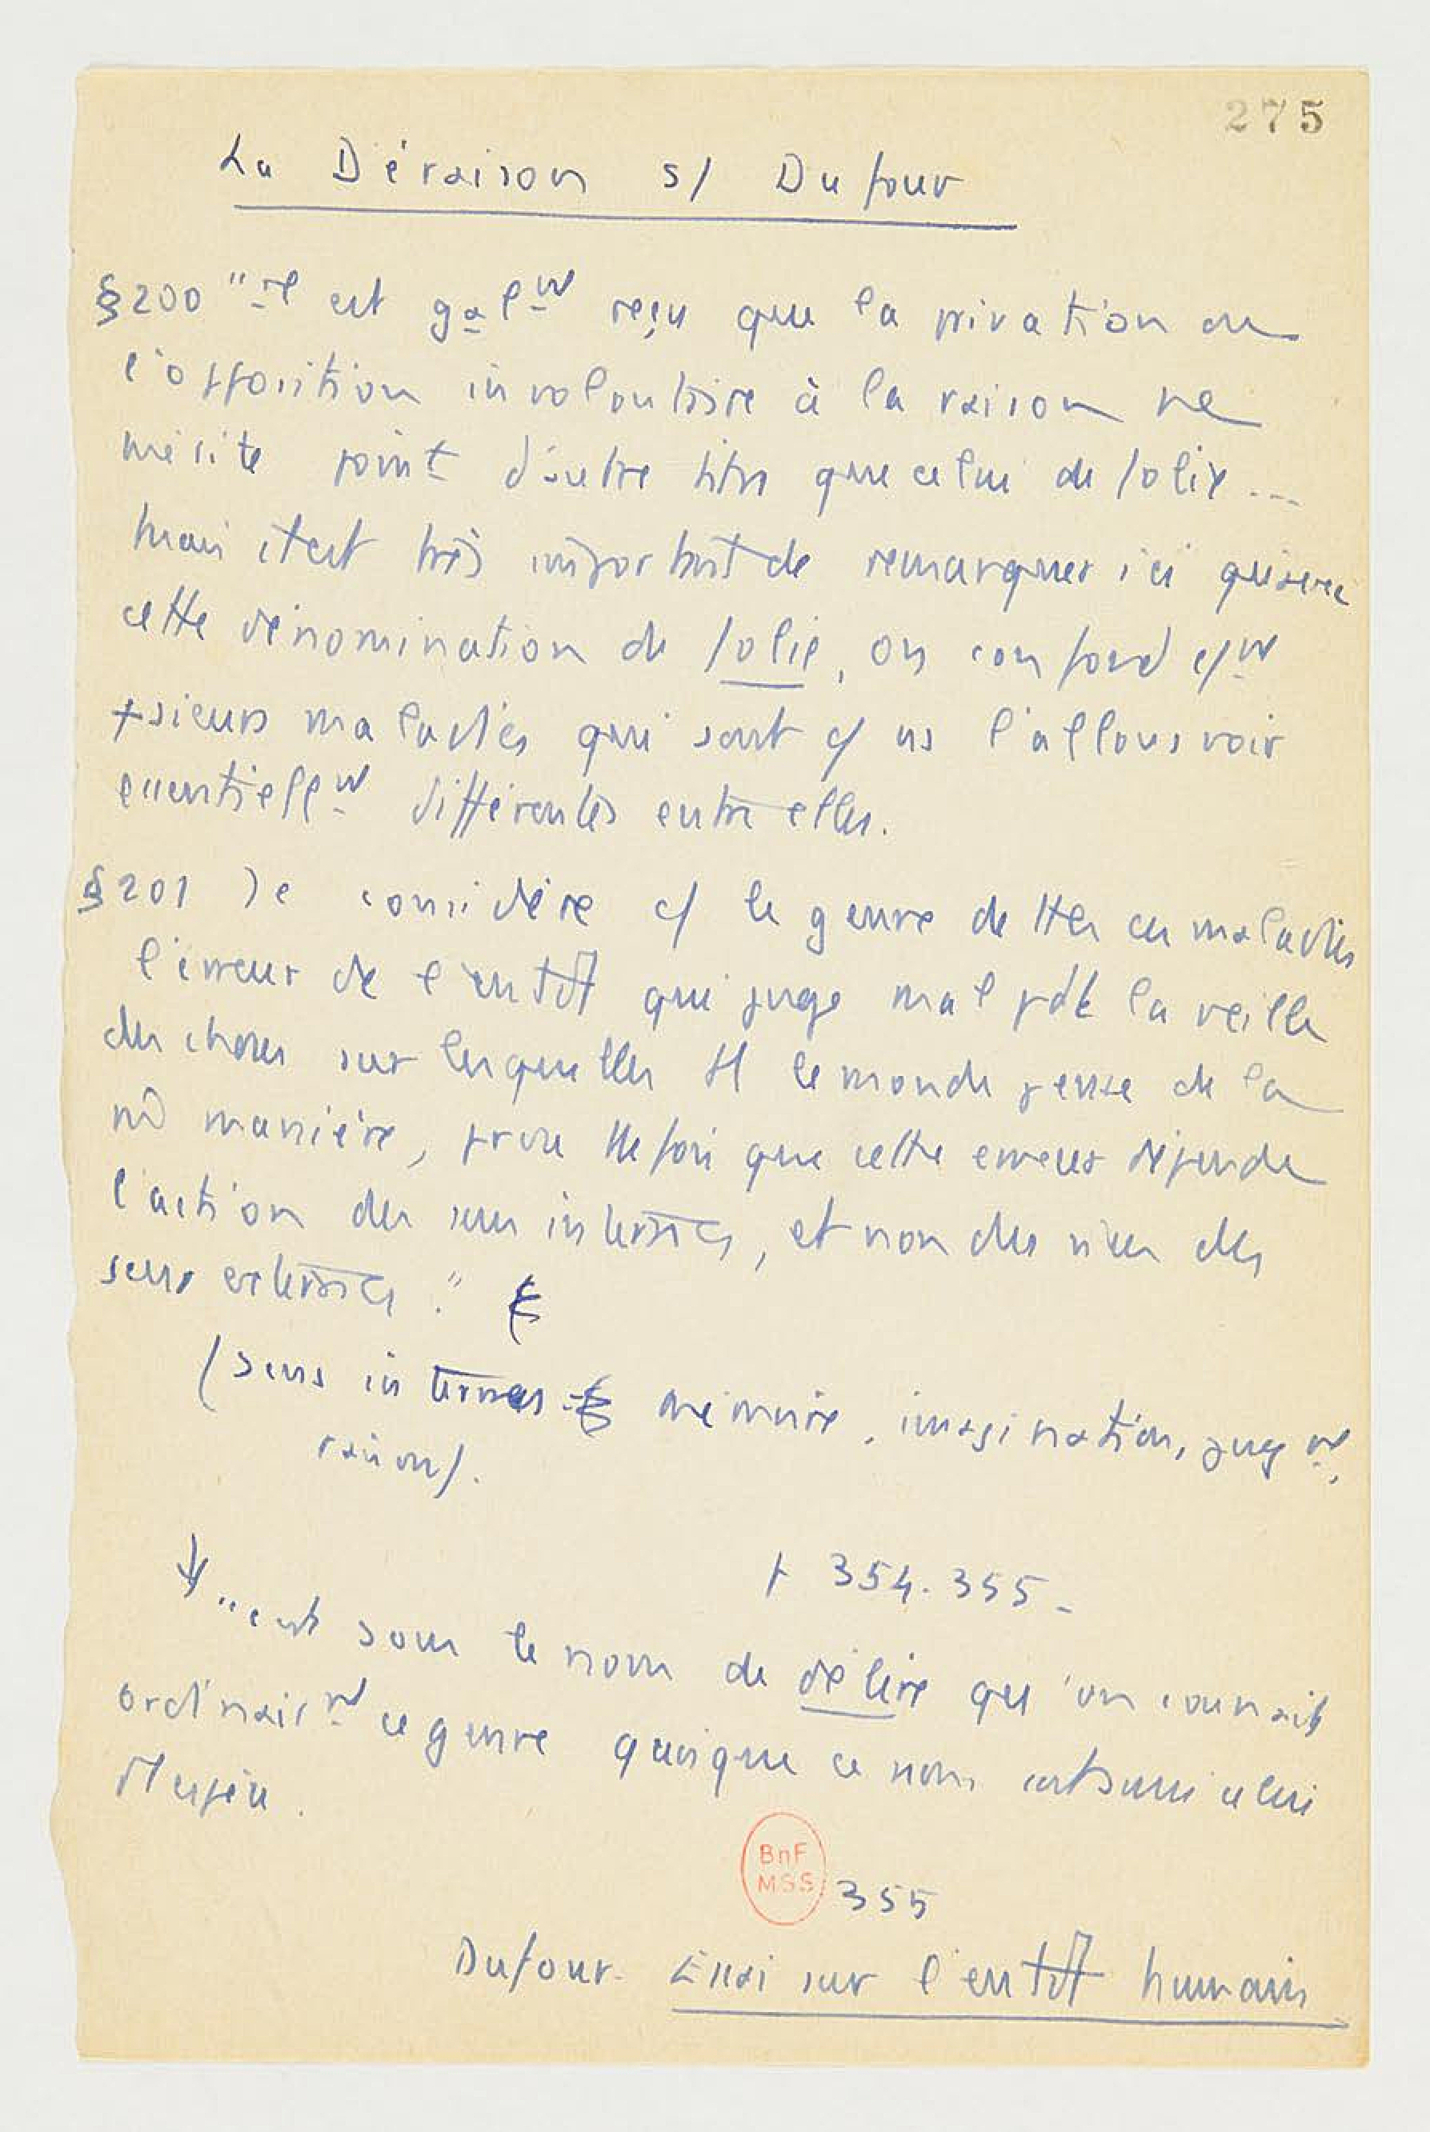 275
La Déraison s/ Dufour
§200 "il est galmt reçu que la privation ou
l'opposition involontaire à la raison ne
mérite point d'autre titre que celui de folie...
Mais il est très important de remarquer ici qu'avec
cette dénomination de folie, on confond c/mt
+sieurs maladies qui sont c/ ns l'allons voir
essentiellmt différentes entre elles.
§201 Je considère c/ le genre de ttes ces maladies
l'erreur de l'entdt qui juge mal pdt la veille
des choses sur lesquelles tt le monde pense de la
mô manière, prvu ttefois que cette erreur dépende
l'action des sens internes, et non des vices des
sens externes."
(sens internes = mémoire, imagination, jugmt,
raison).
p 354.355-
"c'est sous le nom de délire qu'on connait
ordinairmt ce genre quoique ce nom
d'espèce.
BnF
MSS
355
Dufour. Essai sur l'entdt humain